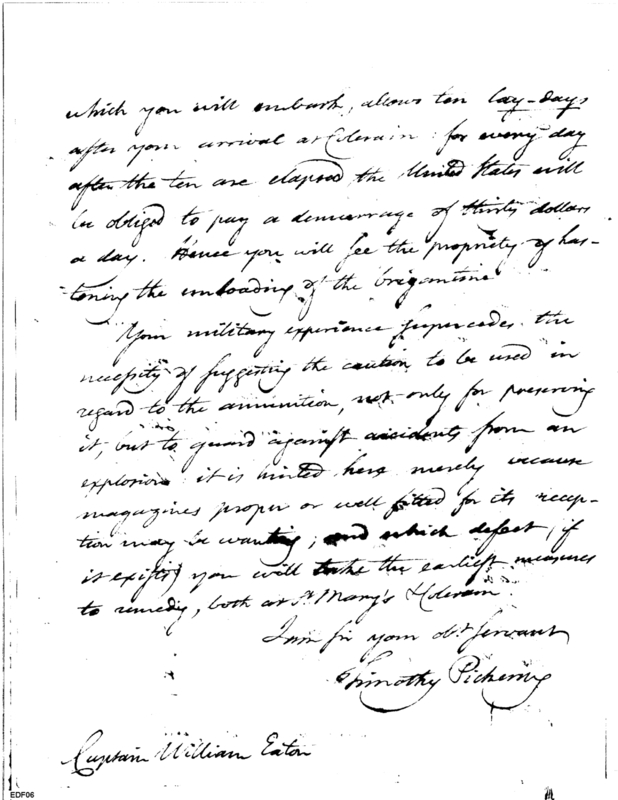 which you will embark, allows ten lay-days
after your arrival at Colerain: for every day
after the ten are elapsed the United States will
be obliged to pay a demurrage of thirty dollars
a day. Hence you will see the propriety of has-
tening the unloading of the brigantine
Your military experience supercedes the
necessity of suggesting the caution to be used in
regard to the amunition, not only for preserving
it, but to guard against accidents from an
explosion: it is hinted here merely because
magazines proper or well fitted for its recep-
tion may be wanting; and which defect, (if
it exists) you will take the earliest measures
to remedy, both at St. Mary's & Colerain.
I am sir your obt servant
Timothy Pickering
Captain William Eaton
EDF06